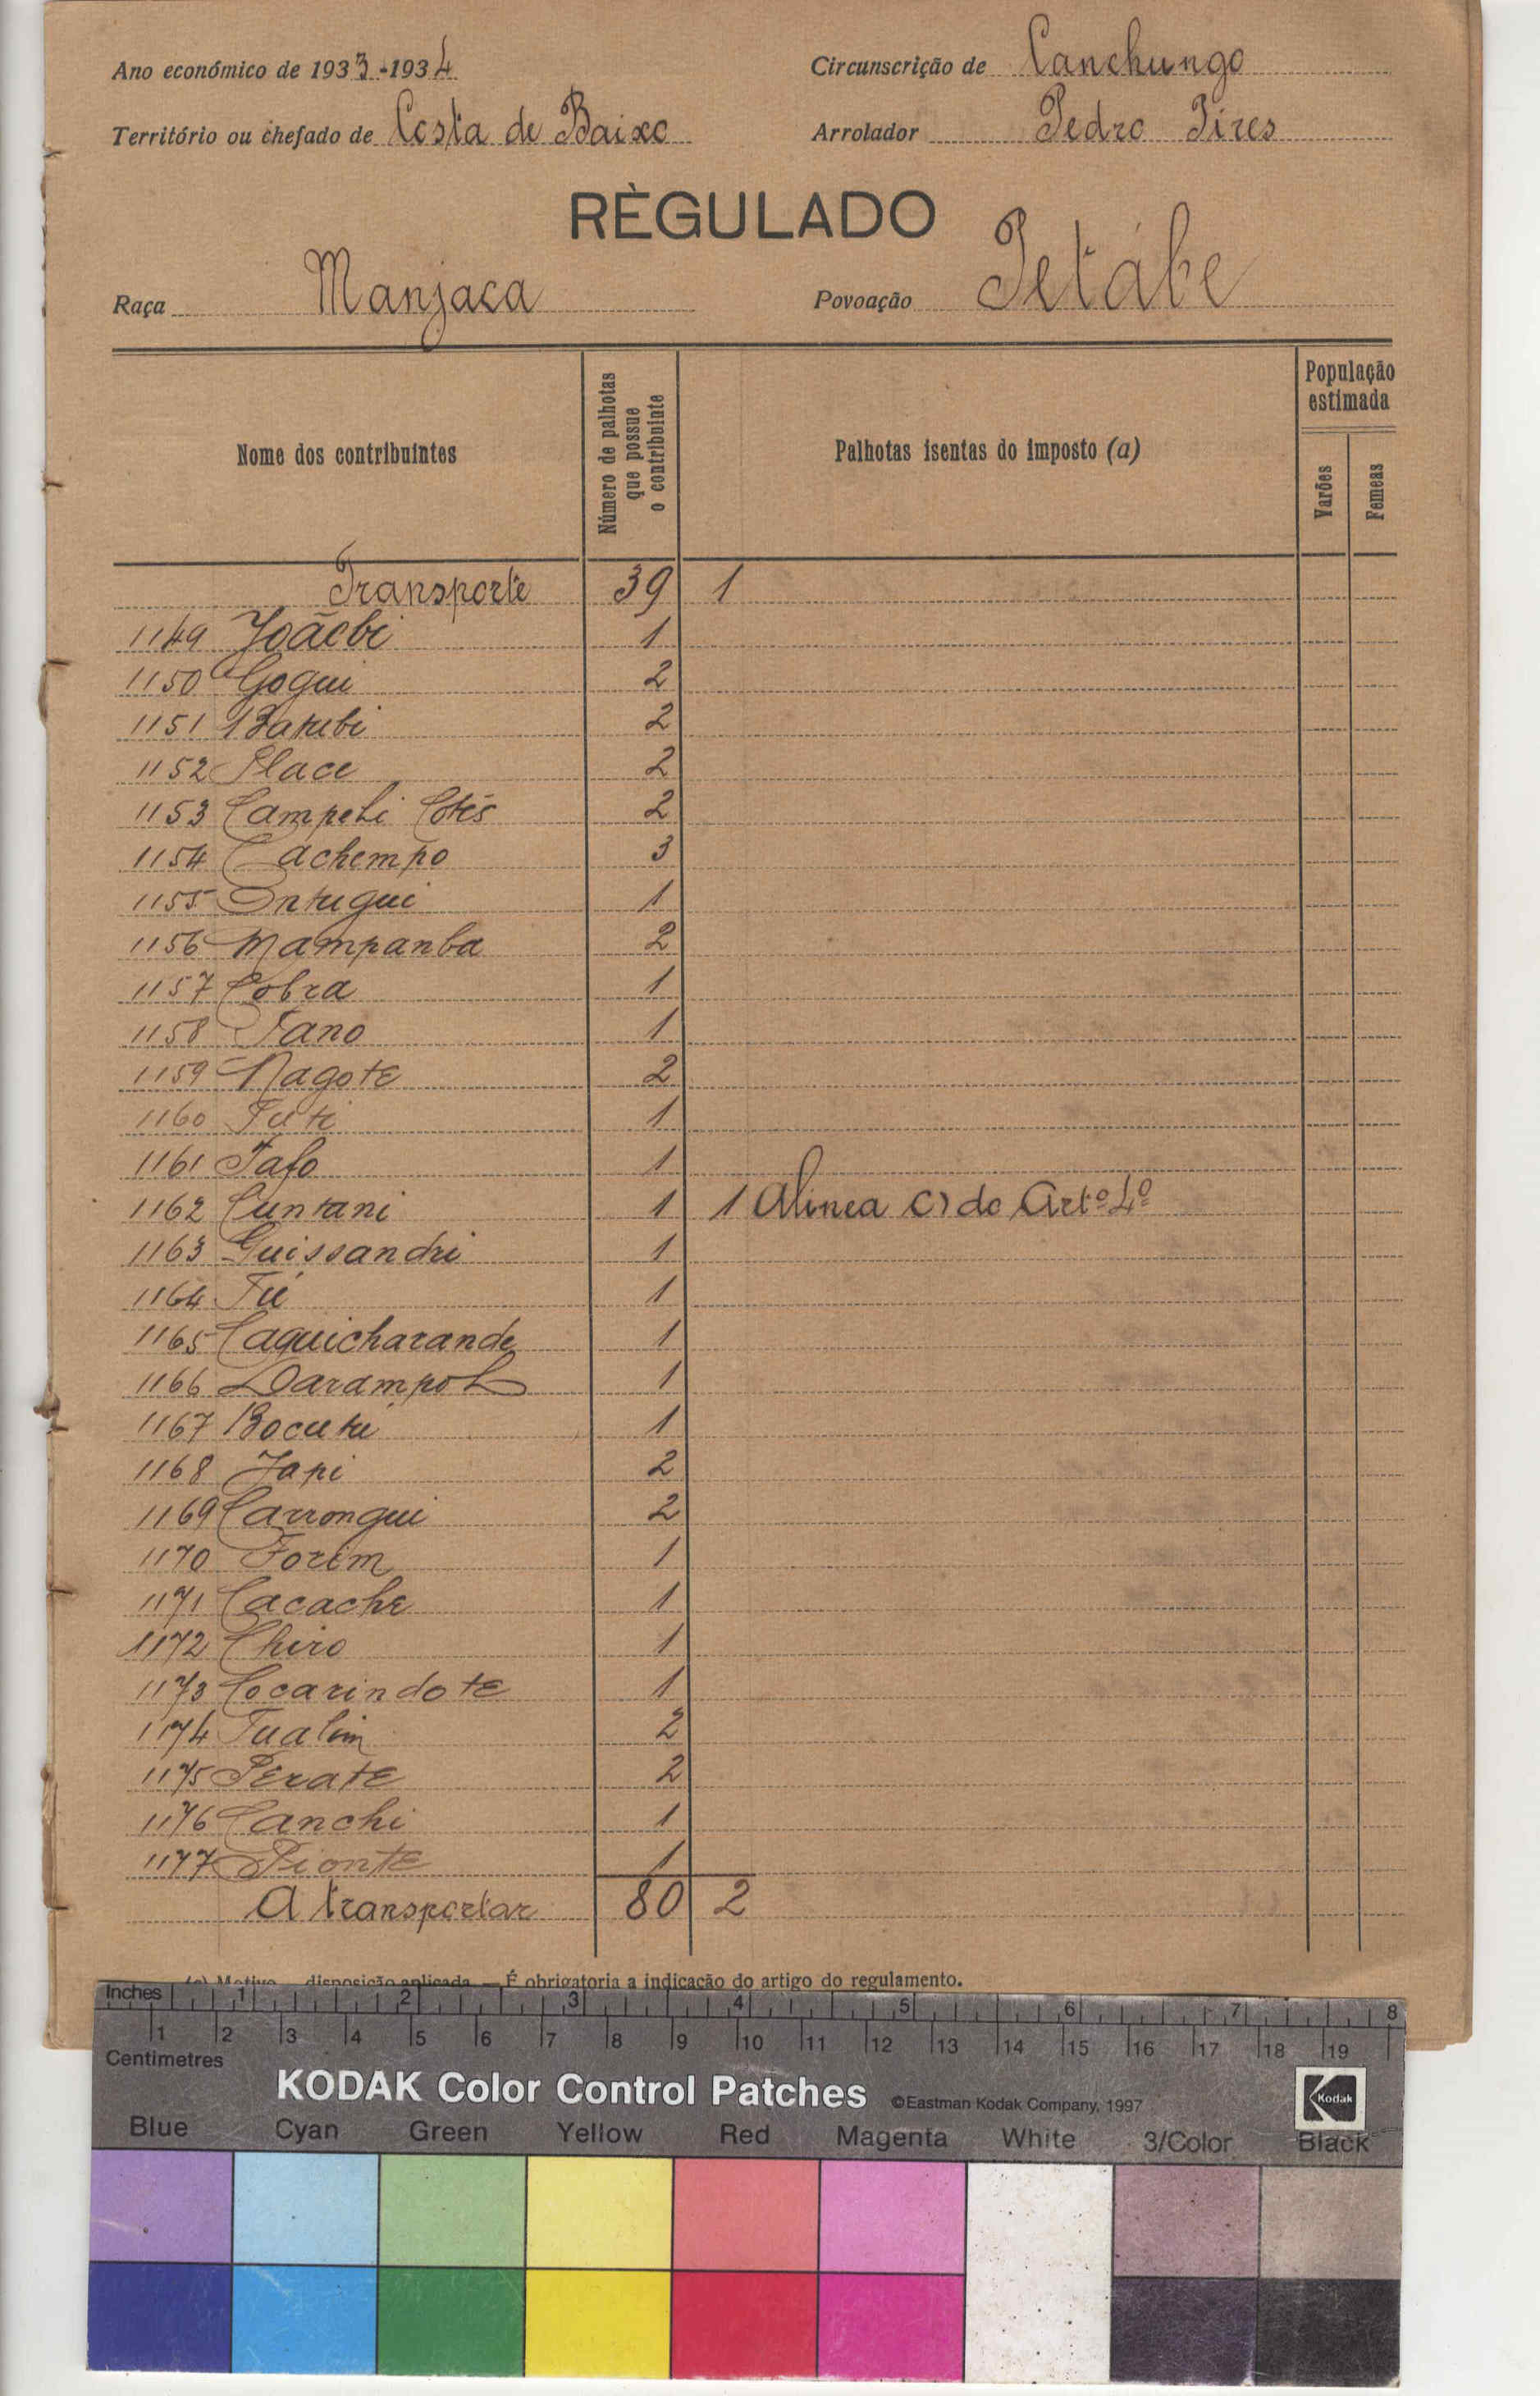 Ano económico de 1933-1934 Circunscrição de Canchungo
Território ou chefado de Costa de Baixo Arrolador Pedro Pires
RÈGULADO
Raça Manjaca Povoação Petábe
Nome dos contribuintes Número de palhotas que possue o contribuinte Palhotas isentas do imposto (a) População estimada Varões Femeas
Transporte 39 1
1149 Joãobi 1
1150 Gogui 2
1151 Batubi 2
1152 Place 2
1153 Campeli 2
1154 Cachempo 3
1155 Ontugui 1
1156 Mampanba 2
1157 Cobra 1
1158 Tano 1
1159 Nagote 2
1160 Tuti 1
1161 Tafo 1
1162 Cuntani 1 1 Alinea c) do Artº 4º
1163 Guissandri 1
1164 Tú 1
1165 Caquicharande 1
1166 Darampol 1
1167 Bocutu 1
1168 Japi 2
1169 Carrongui 2
1170 Forim 1
1171 Cacache 1
1172 Chiro 1
1173 Cocarindote 1
1174 Tualim 2
1175 Perate 2
1176 Canchi 1
1177 Pionte 1
A transportar 80 2
disposição aplicada — É obrigatoria a indicação do artigo do regulamento.
Inches 1 2 3 4 5 6 7 8
1 2 3 4 5 6 7 8 9 10 11 12 13 14 15 16 17 18 19
Centimetres
KODAK Color Control Patches ©Eastman Kodak Company, 1997 Kodak
Blue Cyan Green Yellow Red Magenta White 3/Color Black